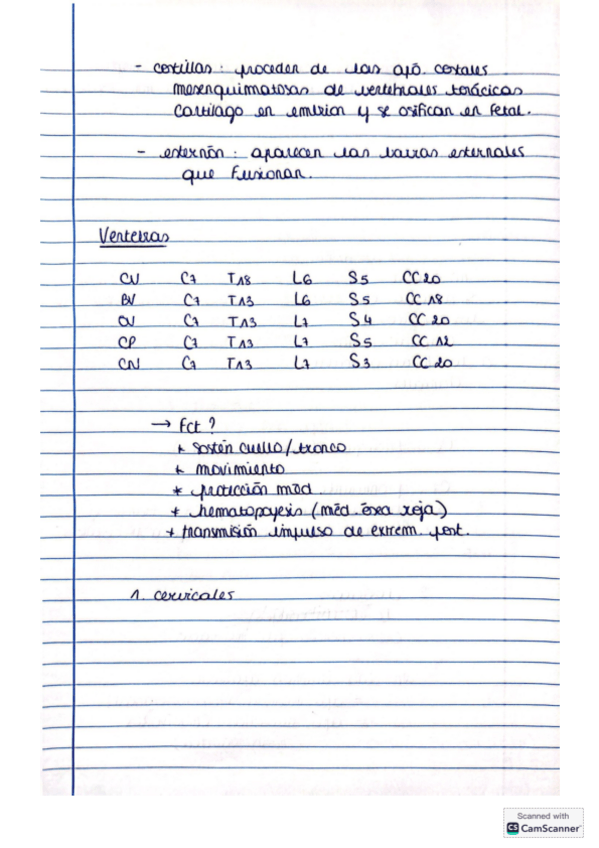 - costillas : proceden de las apó. costales
mesenquimatosas de vertebrales torácicas
Cartilago en embrion y se osifican en fetal.
- esternón : aparecen las barras esternales
que fusionan.
Vertebras
CV C7 T18 L6 S5 CC20
BV C7 T13 L6 S5 CC18
OV C7 T13 L7 S4 CC20
CP C7 T13 L7 S5 CC12
CN C7 T13 L7 S3 CC20
→ Fct ?
* sostén cuello/tronco
* movimiento
* protección méd.
* hematopoyesis (méd. ósea roja)
* transmisión impulso de extrem. post.
1. cervicales
Scanned with
CS CamScanner